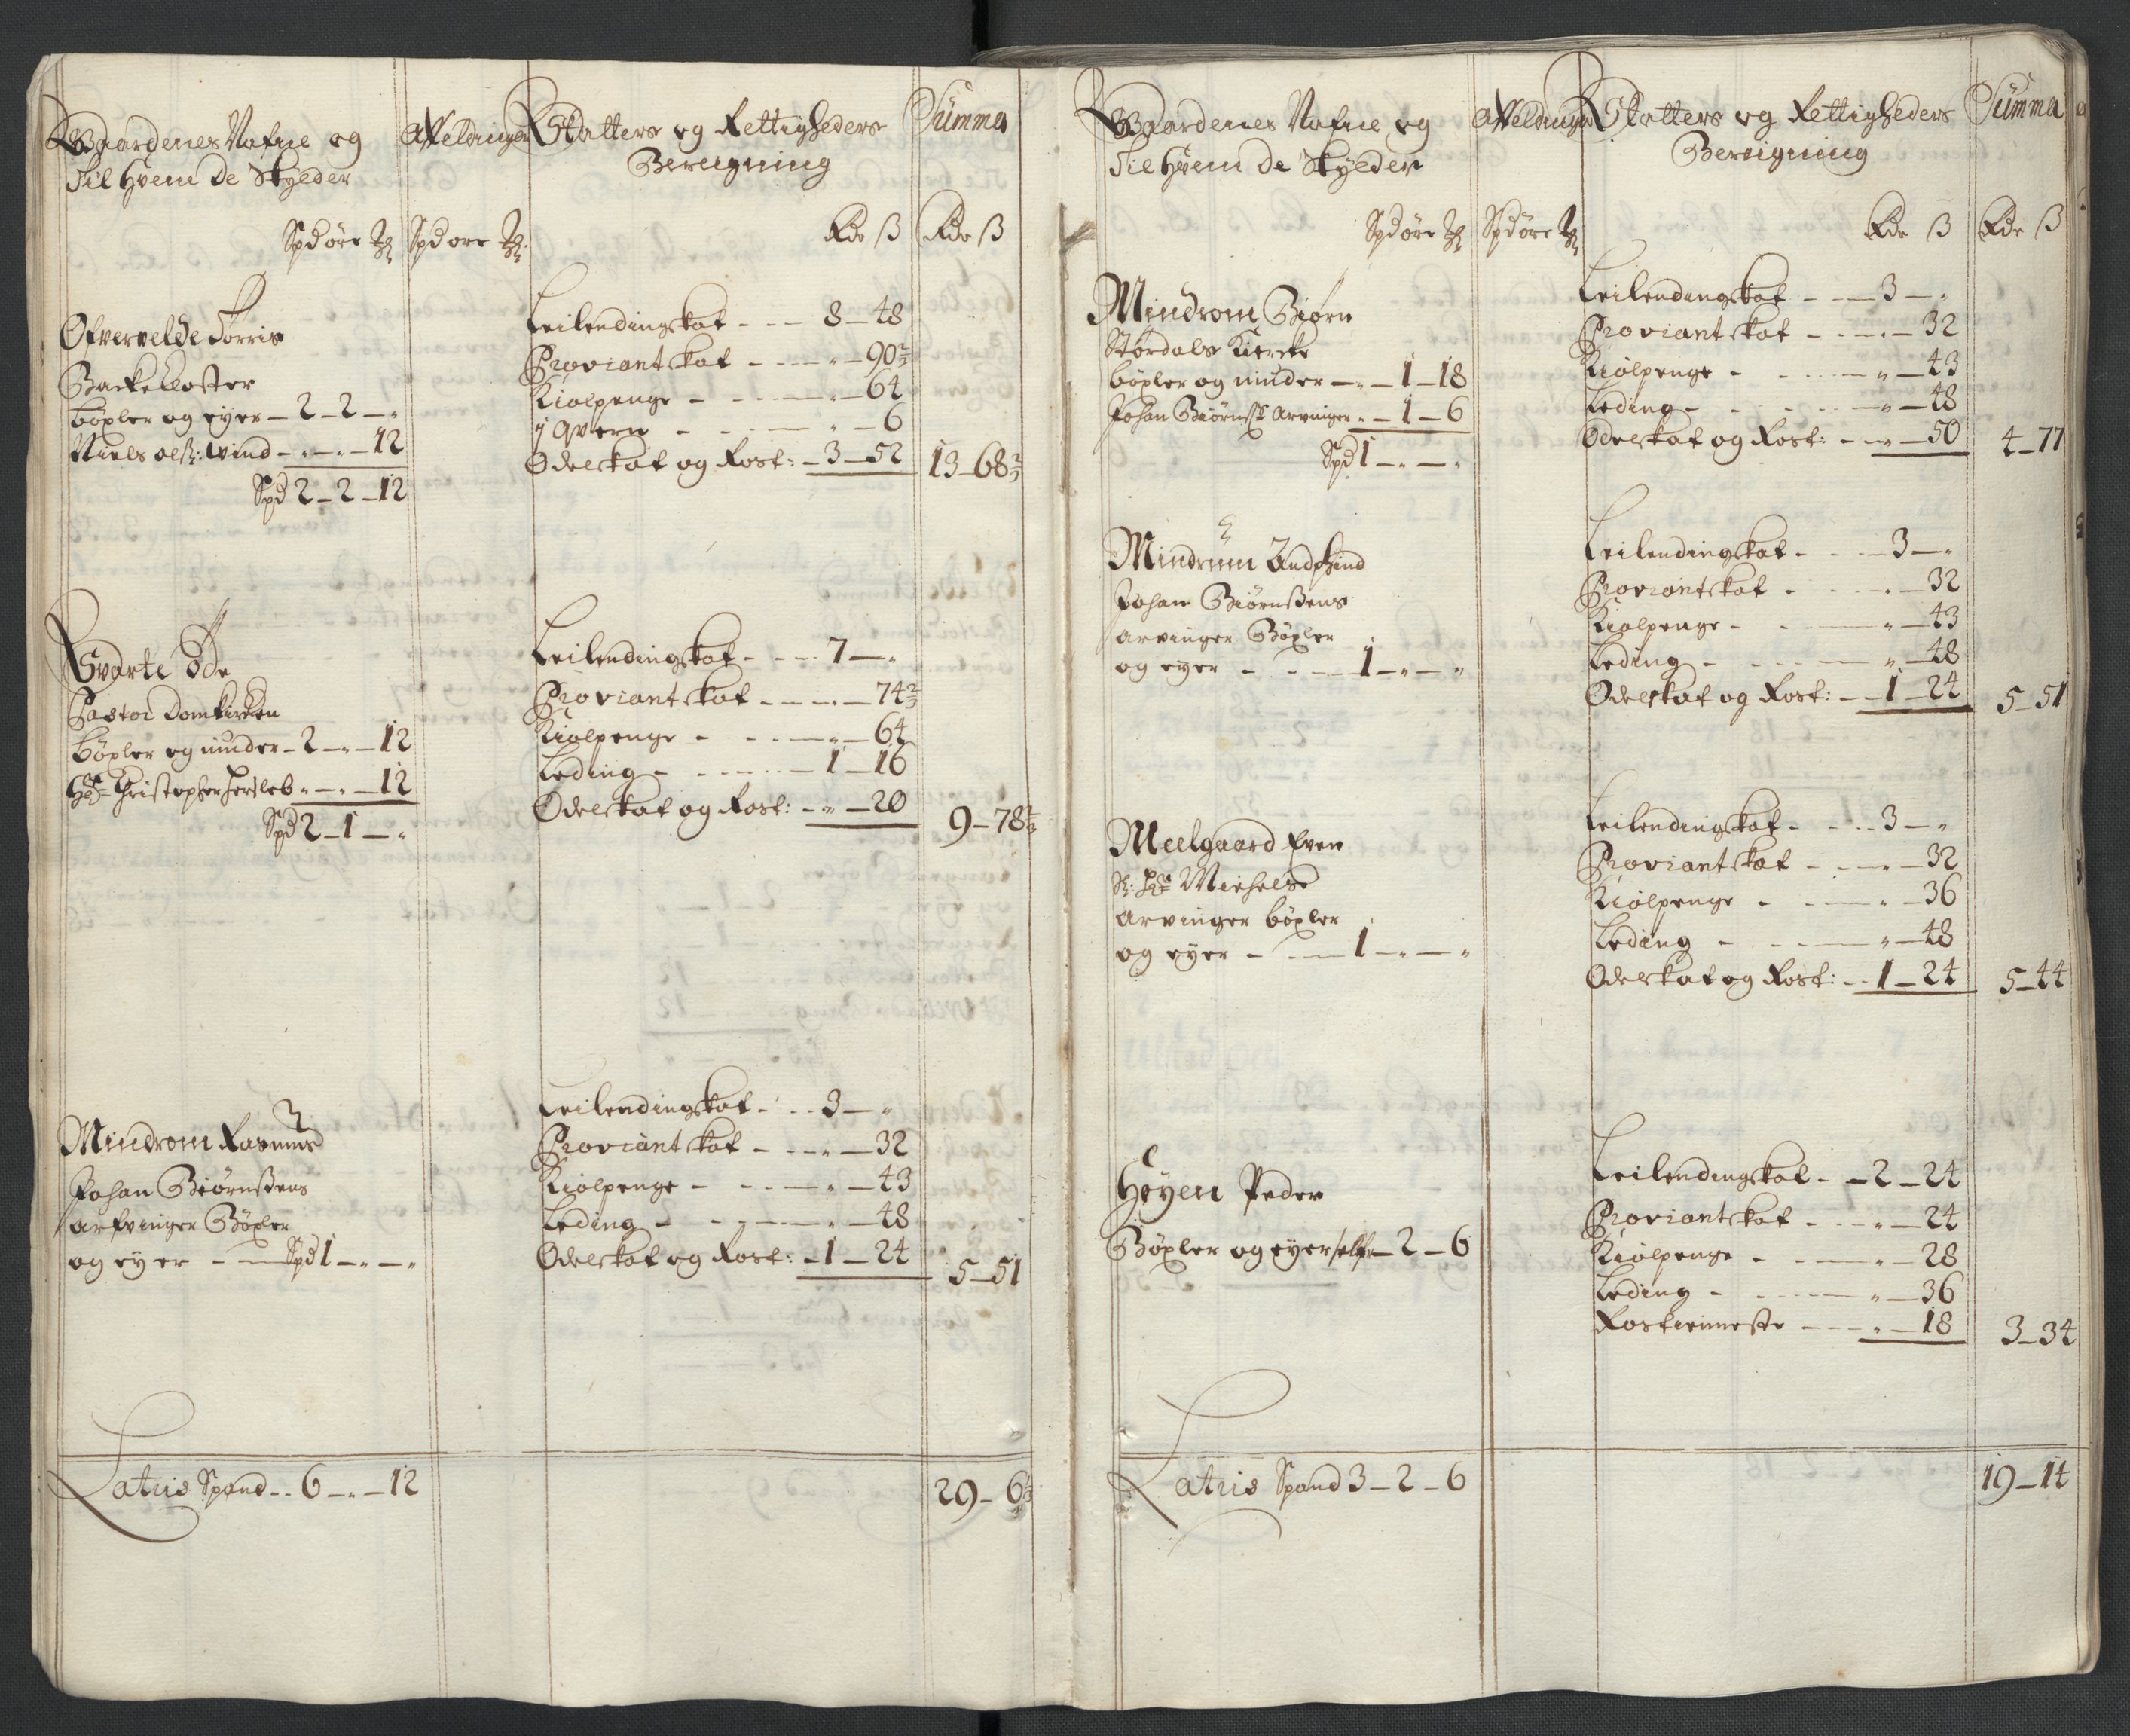 Gaardenes Nafne og
Til Hvem De Skylder
Affeldninger
Skatters og Rettigheders
Beregning
Summa
Spd øre
Spd øre
Rdr ß
Rdr ß
Øfvervelde Torris
Backe Closter
bøxler og eyer – 2 – 2 – „
Niels Olß: Wind – „ – „ – 12
Spd 2 – 2 – 12
Leilendingskat – – – 8 – 48
Proviantskat – – – „ – 90 2/3
Kiølpenge – – – – „ – 64
1 Qvern – – – – „ – 6
Odelskat og Rost: – 3 – 52
13 – 68 2/3
Svarte Øde
Pastor Domkirken
bøxler og minder – 2 – „ – 12
Hr Christopher Hersleb „ – „ – 12
Spd 2 – 1 – „
Leilendingskat – – – 7 – „
Proviantskat – – – „ – 74 2/3
Kiølpenge – – – – „ – 64
Leding – – – – 1 – 16
Odelskat og Rost: – „ – 20
9 – 78 2/3
Mindrom Rasmus
Johan Biørnßens
arfvinger Bøxler
og eyer – – Spd 1 – „ – „
Leilendingskat – – – 3 – „
Proviantskat – – – „ – 32
Kiølpenge – – – – „ – 43
Leding – – – – „ – 48
Odelskat og Rost: – 1 – 24
5 – 51
Latus Spand – – 6 – „ – 12
29 – 6 1/3
Gaardenes Nafne og
Til Hvem De Skylder
Affeldninger
Skatters og Rettigheders
Beregning
Summa
Spd øre
Spd øre
Rdr ß
Rdr ß
Mindrom Biørn
Størdals Kiercke
bøxler og minder – „ – 1 – 18
Johan Biørnß Arvinger „ – 1 – 6
Spd 1 – „ – „
Leilendingskat – – – 3 – „
Proviantskat – – – „ – 32
Kiølpenge – – – – „ – 43
Leding – – – – „ – 48
Odelskat og Rost: – „ – 50
4 – 77
Mindrum
Johan Biørnßens
arvinger Bøxler
og eyer – – – 1 – „ – „
Leilendingskat – – – 3 – „
Proviantskat – – – „ – 32
Kiølpenge – – – – „ – 43
Leding – – – – „ – 48
Odelskat og Rost: – – 1 – 24
5 – 51
Meelgaard Even
Sl: Hr Michels
Arvinger bøxler
og eyer – – – 1 – „ – „
Leilendingskat – – – 3 – „
Proviantskat – – – „ – 32
Kiølpenge – – – – „ – 36
Leding – – – – „ – 48
Odelskat og Rost: – – 1 – 24
5 – 44
Høyen Peder
Bøxler og eyer self – 2 – 6
Leilendingskat – – 2 – 24
Proviantskat – – – „ – 24
Kiølpenge – – – – „ – 28
Leding – – – – „ – 36
Rostieneste – – – „ – 18
3 – 34
Latus Spand 3 – 2 – 6
19 – 14